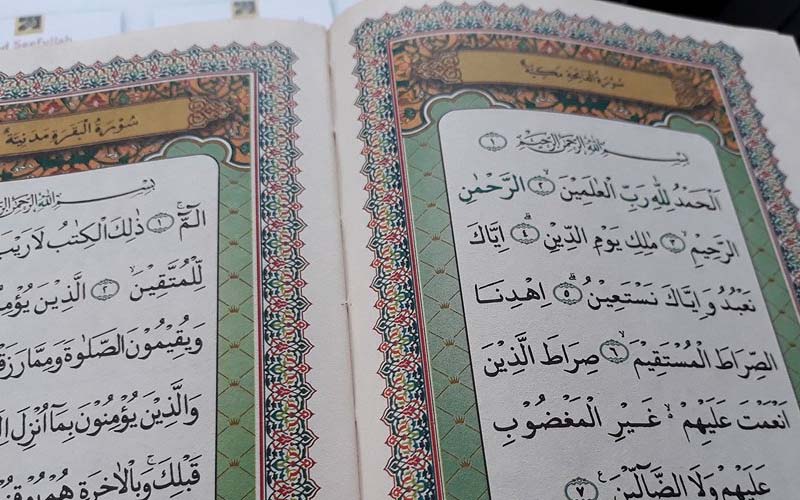 سُوْرَةُ الْفَاتِحَةِ مَكِّيَّةٌ
بِسْمِ اللّٰهِ الرَّحْمٰنِ الرَّحِيْمِ ١
اَلْحَمْدُ لِلّٰهِ رَبِّ الْعٰلَمِيْنَۙ ٢ الرَّحْمٰنِ
الرَّحِيْمِۙ ٣ مٰلِكِ يَوْمِ الدِّيْنِۗ ٤ اِيَّاكَ
نَعْبُدُ وَاِيَّاكَ نَسْتَعِيْنُۗ ٥ اِهْدِنَا
الصِّرَاطَ الْمُسْتَقِيْمَۙ ٦ صِرَاطَ الَّذِيْنَ
اَنْعَمْتَ عَلَيْهِمْ ەۙ غَيْرِ الْمَغْضُوْبِ
عَلَيْهِمْ وَلَا الضَّاۤلِّيْنَࣖ ٧
سُوْرَةُ الْبَقَرَةِ مَدَنِيَّةٌ
بِسْمِ اللّٰهِ الرَّحْمٰنِ
الۤمّۤۚ ١ ذٰلِكَ الْكِتٰبُ لَا رَيْبَ
لِّلْمُتَّقِيْنَۙ ٢ الَّذِيْنَ
وَيُقِيْمُوْنَ الصَّلٰوةَ وَمِمَّا
وَالَّذِيْنَ يُؤْمِنُوْنَ بِمَآ اُنْزِلَ
قَبْلِكَۚ وَبِالْاٰخِرَةِ هُمْ
Seefullah